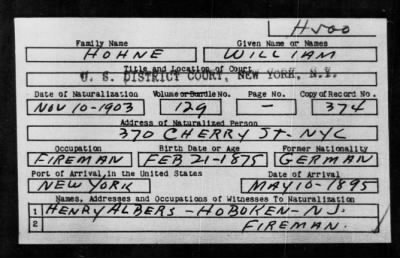 H500
Family Name Given Name or Names
HOHNE WILLIAM
Title and Location of Court
U. S. DISTRICT COURT, NEW YORK, N.Y.
Date of Naturalization Volume or Bundle No. Page No. Copy of Record No.
NOV 10-1903 129 — 374
Address of Naturalized Person
370 CHERRY ST-NYC
Occupation Birth Date or Age Former Nationality
FIREMAN FEB 21-1875 GERMAN
Port of Arrival,in the United States Date of Arrival
NEW YORK MAY 10-1895
Names, Addresses and Occupations of Witnesses To Naturalization
1 HENRY ALBERS - HOBOKEN - N J.
2 FIREMAN.